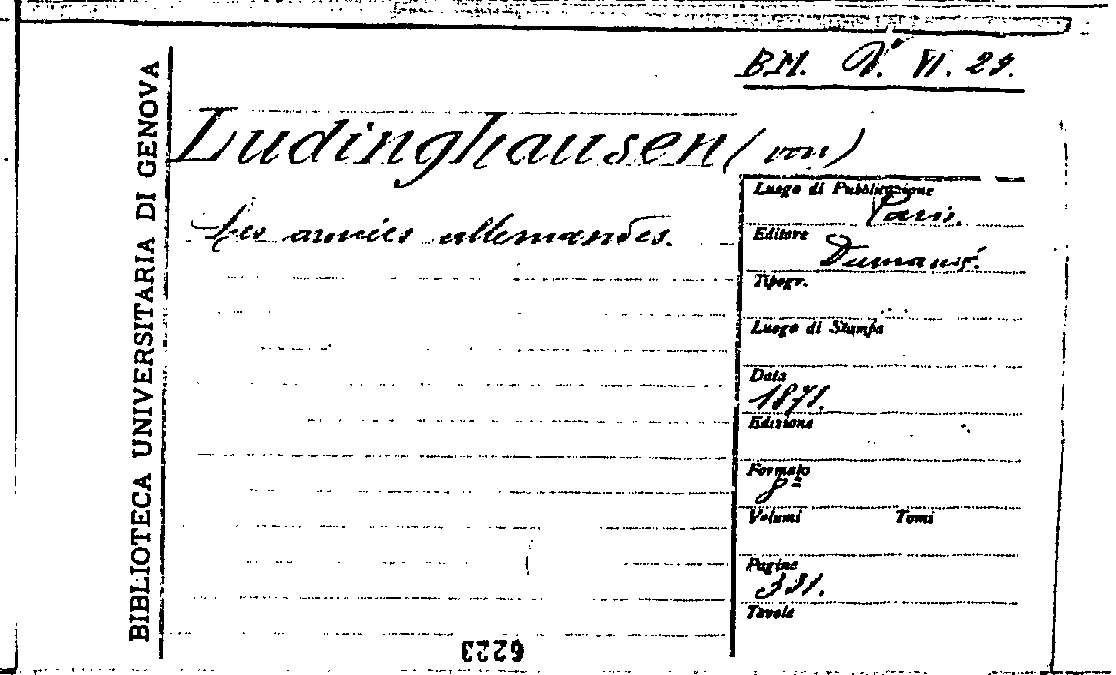 BIBLIOTECA UNIVERSITARIA DI GENOVA
B.M. V. VI. 29.
Ludinghausen (von)
Les armées allemandes.
Luogo di Pubblicazione
Paris.
Editore
Tipogr.
Luogo di Stampa
Data
1871.
Edizione
Formato
8º
Volumi Tomi
Pagine
331.
Tavole
6223